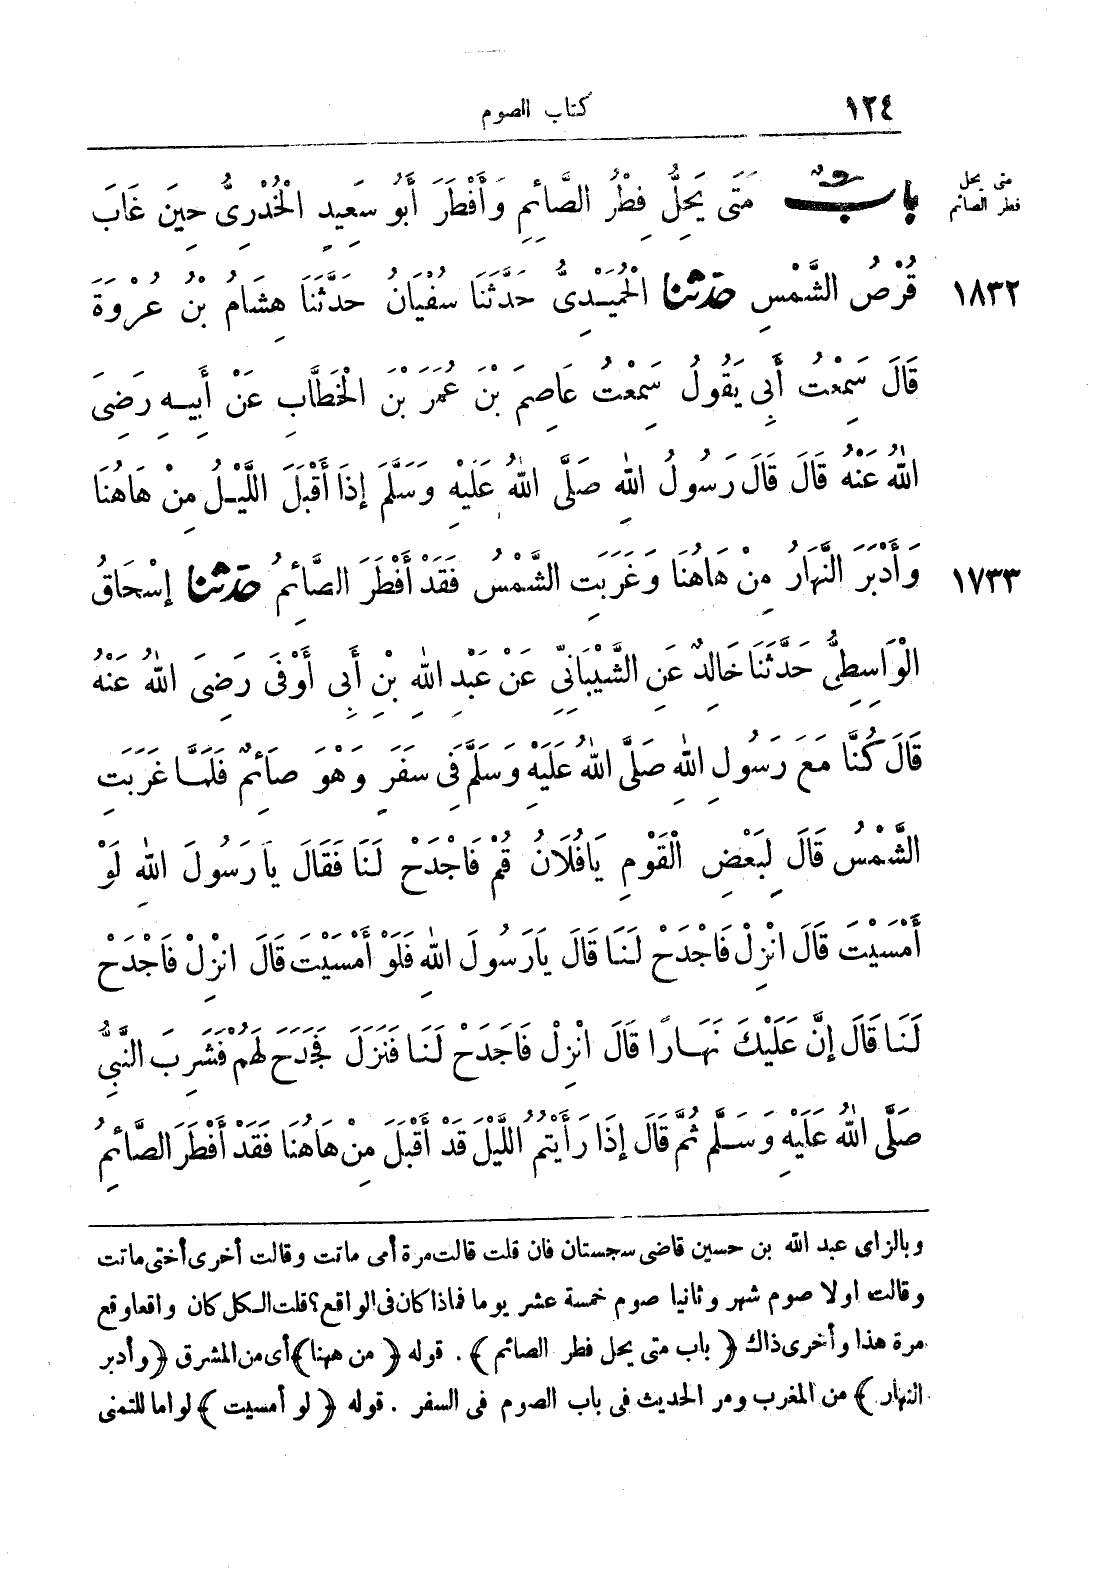 ١٢٤ كتاب الصوم
متى يحل
فطر الصائم
بابٌ مَتَى يَحِلُّ فِطْرُ الصَّائِمِ وَأَفْطَرَ أَبُو سَعِيدٍ الْخُدْرِىُّ حِينَ غَابَ
١٨٣٢ قُرْصُ الشَّمْسِ حدثنا الْحُمَيْدِىُّ حَدَّثَنَا سُفْيَانُ حَدَّثَنَا هِشَامُ بْنُ عُرْوَةَ
قَالَ سَمِعْتُ أَبِى يَقُولُ سَمِعْتُ عَاصِمَ بْنَ عُمَرَ بْنَ الْخَطَّابِ عَنْ أَبِيهِ رَضِىَ
اللهُ عَنْهُ قَالَ قَالَ رَسُولُ اللهِ صَلَّى اللهُ عَلَيْهِ وَسَلَّمَ إِذَا أَقْبَلَ اللَّيْلُ مِنْ هَاهُنَا
١٧٣٣ وَأَدْبَرَ النَّهَارُ مِنْ هَاهُنَا وَغَرَبَتِ الشَّمْسُ فَقَدْ أَفْطَرَ الصَّائِمُ حدثنا إِسْحَاقُ
الْوَاسِطِىُّ حَدَّثَنَا خَالِدٌ عَنِ الشَّيْبَانِىِّ عَنْ عَبْدِ اللهِ بْنِ أَبِى أَوْفَى رَضِىَ اللهُ عَنْهُ
قَالَ كُنَّا مَعَ رَسُولِ اللهِ صَلَّى اللهُ عَلَيْهِ وَسَلَّمَ فِى سَفَرٍ وَهْوَ صَائِمٌ فَلَمَّا غَرَبَتِ
الشَّمْسُ قَالَ لِبَعْضِ الْقَوْمِ يَافُلَانُ قُمْ فَاجْدَحْ لَنَا فَقَالَ يَارَسُولَ اللهِ لَوْ
أَمْسَيْتَ قَالَ انْزِلْ فَاجْدَحْ لَنَا قَالَ يَارَسُولَ اللهِ فَلَوْ أَمْسَيْتَ قَالَ انْزِلْ فَاجْدَحْ
لَنَا قَالَ إِنَّ عَلَيْكَ نَهَارًا قَالَ انْزِلْ فَاجْدَحْ لَنَا فَنَزَلَ فَجَدَحَ لَهُمْ فَشَرِبَ النَّبِىُّ
صَلَّى اللهُ عَلَيْهِ وَسَلَّمَ ثُمَّ قَالَ إِذَا رَأَيْتُمُ اللَّيْلَ قَدْ أَقْبَلَ مِنْ هَاهُنَا فَقَدْ أَفْطَرَ الصَّائِمُ
وبالزاى عبد الله بن حسين قاضى سجستان فان قلت قالت مرة أمى ماتت وقالت أخرى أختى ماتت
وقالت اولا صوم شهر وثانيا صوم خمسة عشر يوما فماذا كان فى الواقع؟ قلت الكل كان واقعا وقع
مرة هذا وأخرى ذاك ﴿باب متى يحل فطر الصائم﴾. قوله ﴿من ههنا﴾ أى من المشرق ﴿وأدبر
النهار﴾ من المغرب ومر الحديث فى باب الصوم فى السفر . قوله ﴿لو أمسيت﴾ لو اما للتمنى